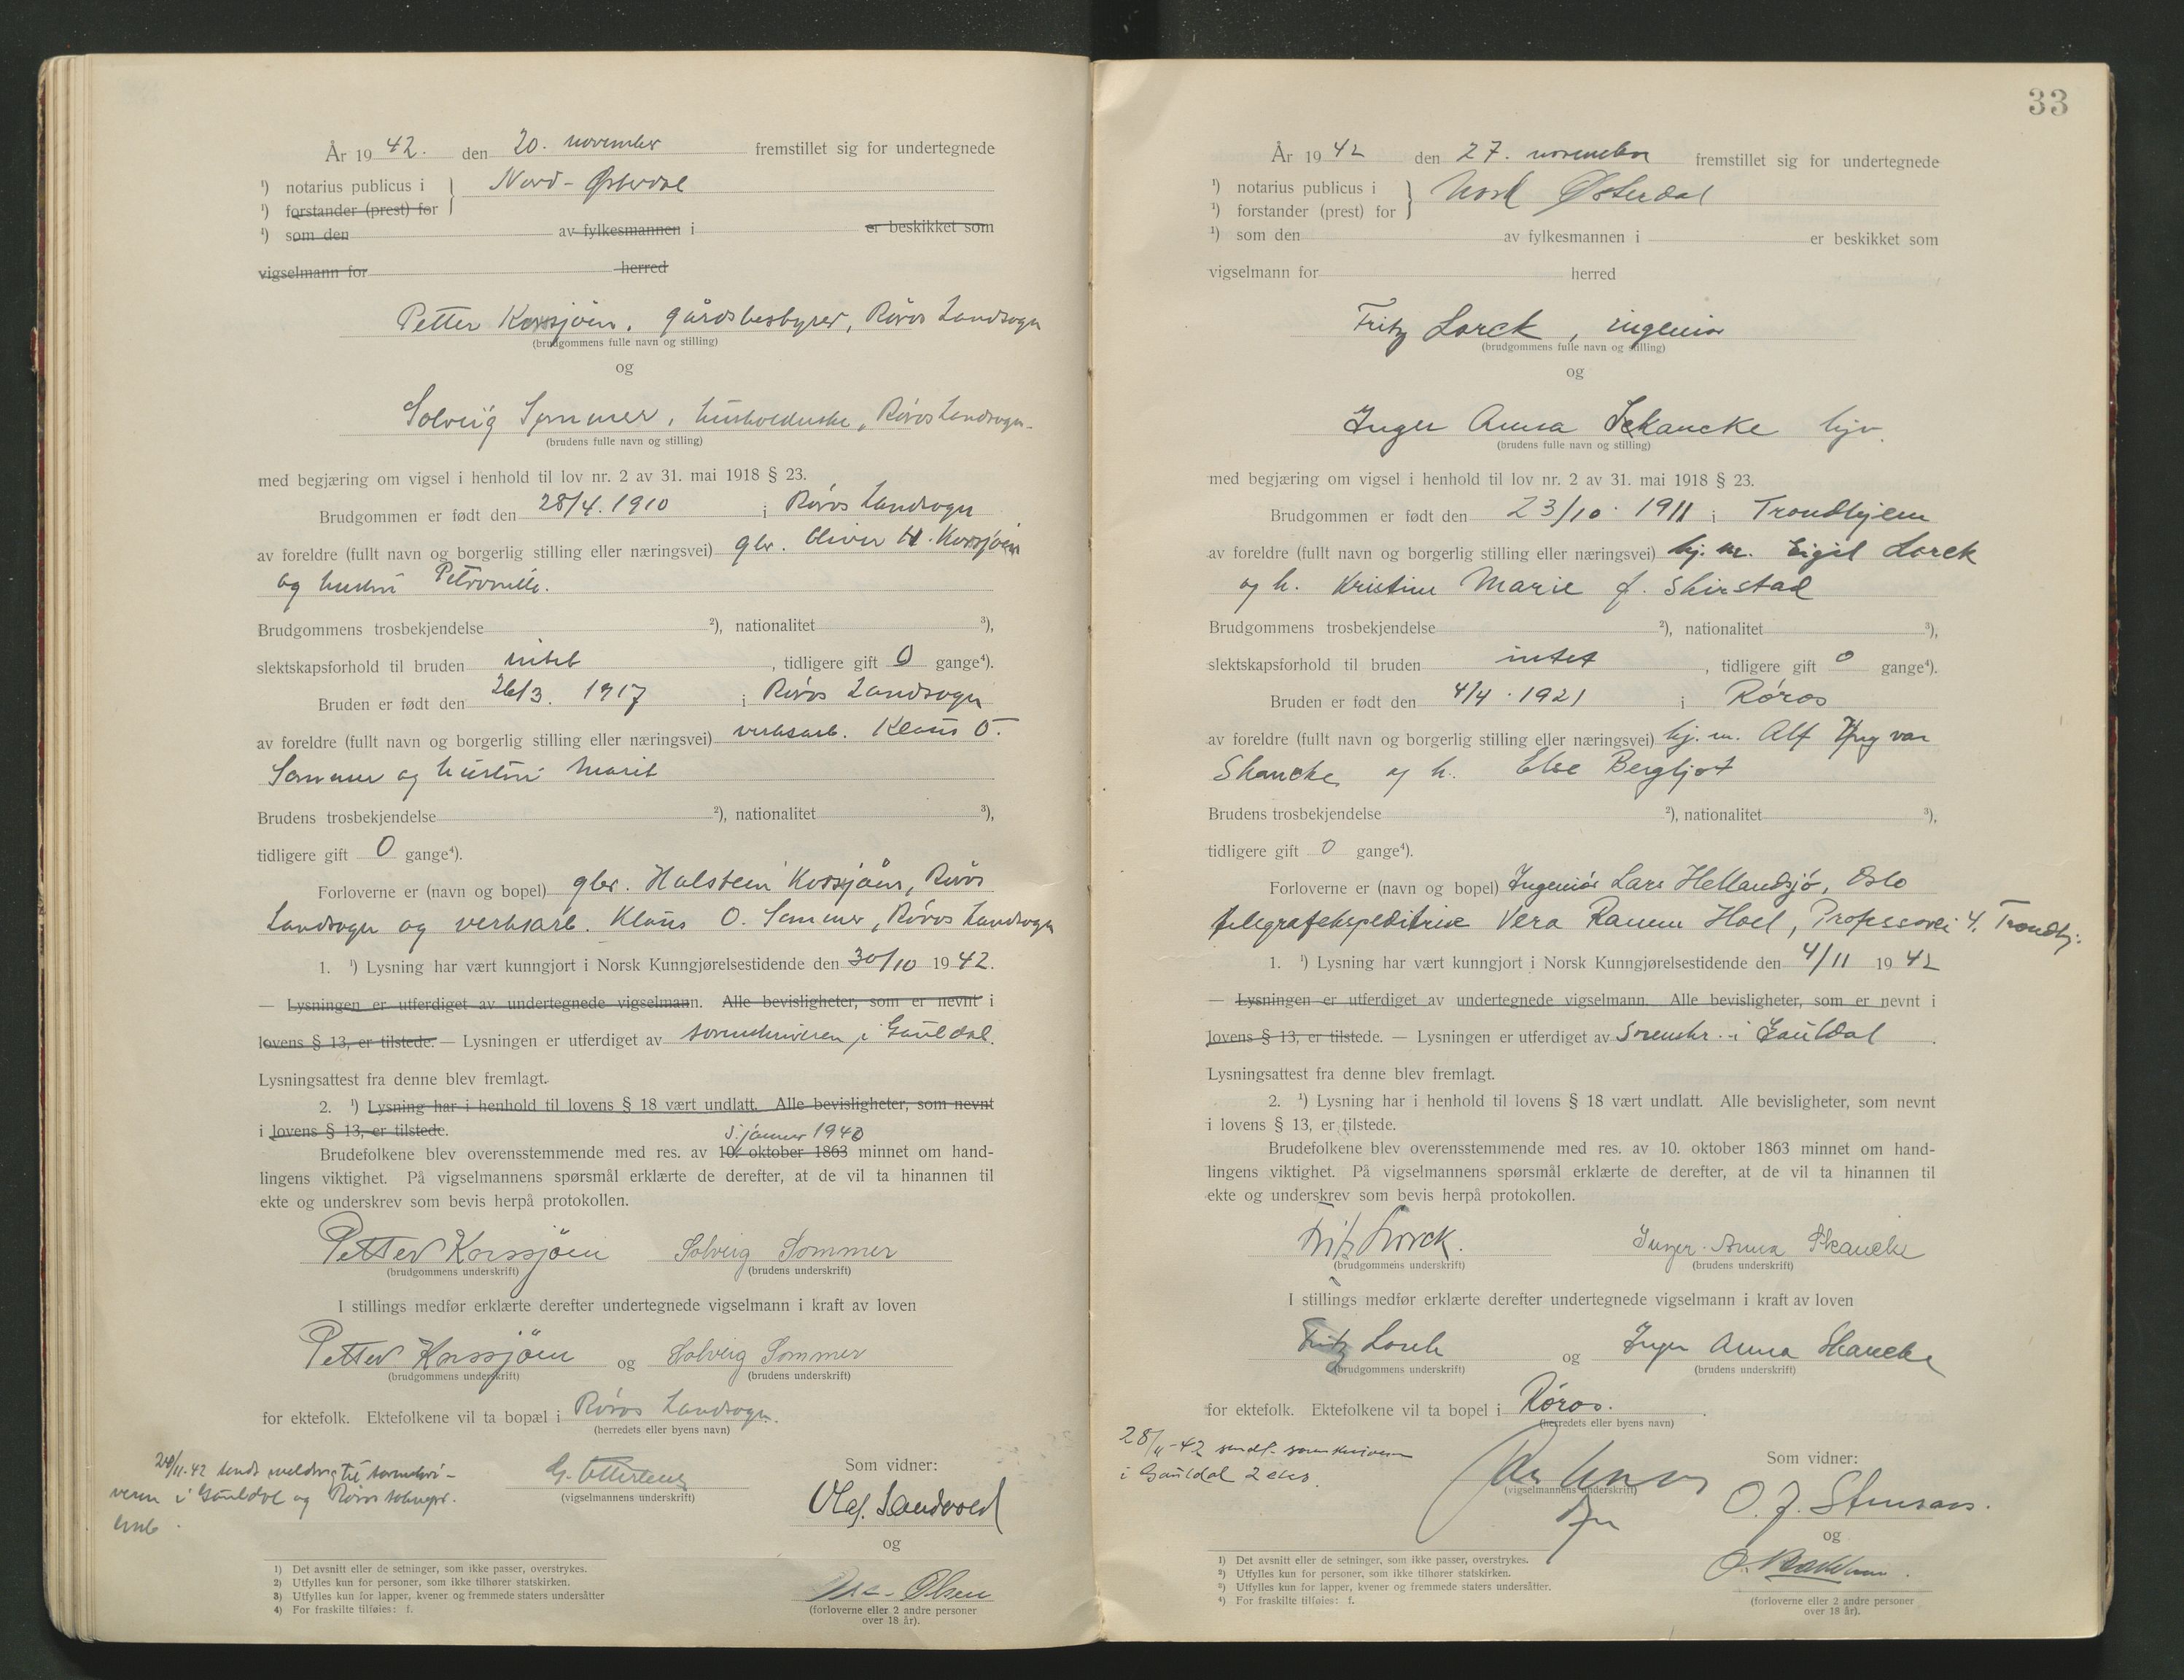 År 19 42. den 20. november fremstillet sig for undertegnede
¹) notarius publicus i } Nord-Østerdal
¹) forstander (prest) for
¹) som den av fylkesmannen i er beskikket som
vigselmann for herred
Petter Korssjøen, gårdsbestyrer, Røros Landsogn
(brudgommens fulle navn og stilling)
og
Solveig Sommer, husholderske, Røros Landsogn.
(brudens fulle navn og stilling)
med begjæring om vigsel i henhold til lov nr. 2 av 31. mai 1918 § 23.
Brudgommen er født den 28/4. 1910 i Røros Landsogn
av foreldre (fullt navn og borgerlig stilling eller næringsvei) gbr. Oliver H. Korssjøen
og hustru Petronelle.
Brudgommens trosbekjendelse ²), nationalitet ³),
slektskapsforhold til bruden intet, tidligere gift 0 gange⁴).
Bruden er født den 26/3. 1917 i Røros Landsogn
av foreldre (fullt navn og borgerlig stilling eller næringsvei) verksarb. Klaus O.
Sommer og hustru Marit
Brudens trosbekjendelse ²), nationalitet ³),
tidligere gift 0 gange⁴).
Forloverne er (navn og bopel) gbr. Halstein Korssjøen, Røros
Landsogn og verksarb. Klaus O. Sommer, Røros Landsogn
1. ¹) Lysning har vært kunngjort i Norsk Kunngjørelsestidende den 30/10 19 42.
— Lysningen er utferdiget av undertegnede vigselmann. Alle bevisligheter, som er nevnt i
lovens § 13, er tilstede. — Lysningen er utferdiget av sorenskriveren i Gauldal.
Lysningsattest fra denne blev fremlagt.
2. ¹) Lysning har i henhold til lovens § 18 vært undlatt. Alle bevisligheter, som nevnt
i lovens § 13, er tilstede.
5. januar 1940
Brudefolkene blev overensstemmende med res. av 10. oktober 1863 minnet om hand-
lingens viktighet. På vigselmannens spørsmål erklærte de derefter, at de vil ta hinannen til
ekte og underskrev som bevis herpå protokollen.
Petter Korssjøen Solveig Sommer
(brudgommens underskrift) (brudens underskrift)
I stillings medfør erklærte derefter undertegnede vigselmann i kraft av loven
Petter Korssjøen og Solveig Sommer
(brudgommens underskrift) (brudens underskrift)
for ektefolk. Ektefolkene vil ta bopæl i Røros Landsogn.
(herredets eller byens navn)
/11-42 sendt melding til sorenskri-
veren i Gauldal og Røros
Som vidner:
(vigselmannens underskrift)
Olaf Sandvold
og
Olsen
(forloverne eller 2 andre personer
over 18 år).
1) Det avsnitt eller de setninger, som ikke passer, overstrykes.
2) Utfylles kun for personer, som ikke tilhører statskirken.
3) Utfylles kun for lapper, kvener og fremmede staters undersåtter
4) For fraskilte tilføies: f.
33
År 19 42 den 27. november fremstillet sig for undertegnede
¹) notarius publicus i } Nord Østerdal
¹) forstander (prest) for
¹) som den av fylkesmannen i er beskikket som
vigselmann for herred
Fritz Lorck, ingeniør
(brudgommens fulle navn og stilling)
og
Inger Anna Skancke hjv.
(brudens fulle navn og stilling)
med begjæring om vigsel i henhold til lov nr. 2 av 31. mai 1918 § 23.
Brudgommen er født den 23/10. 1911 i Trondhjem
av foreldre (fullt navn og borgerlig stilling eller næringsvei) Eigil Lorck
og h. Kristine Marie f. Skirstad
Brudgommens trosbekjendelse ²), nationalitet ³),
slektskapsforhold til bruden intet, tidligere gift 0 gange⁴).
Bruden er født den 4/4. 1921 i Røros
av foreldre (fullt navn og borgerlig stilling eller næringsvei) hj. m. Alf Yngvar
Skancke og h. Else Bergljot
Brudens trosbekjendelse ²), nationalitet ³),
tidligere gift 0 gange⁴).
Forloverne er (navn og bopel) Ingeniør Lars Hellandsjø, Oslo
telegrafekspeditrise Vera Ramm Hoel, Professorvei 4, Trondhj.
1. ¹) Lysning har vært kunngjort i Norsk Kunngjørelsestidende den 4/11 19 42
— Lysningen er utferdiget av undertegnede vigselmann. Alle bevisligheter, som er nevnt i
lovens § 13, er tilstede. — Lysningen er utferdiget av Sorenskr. i Gauldal.
Lysningsattest fra denne blev fremlagt.
2. ¹) Lysning har i henhold til lovens § 18 vært undlatt. Alle bevisligheter, som nevnt
i lovens § 13, er tilstede.
Brudefolkene blev overensstemmende med res. av 10. oktober 1863 minnet om hand-
lingens viktighet. På vigselmannens spørsmål erklærte de derefter, at de vil ta hinannen til
ekte og underskrev som bevis herpå protokollen.
Fritz Lorck. Inger Anna Skancke
(brudgommens underskrift) (brudens underskrift)
I stillings medfør erklærte derefter undertegnede vigselmann i kraft av loven
Fritz Lorck og Inger Anna Skancke
(brudgommens underskrift) (brudens underskrift)
for ektefolk. Ektefolkene vil ta bopel i Røros.
(herredets eller byens navn)
28/11-42 sendt sorenskriveren
i Gauldal 2 eks.
Som vidner:
(vigselmannens underskrift)
O. J. Stensaas.
og
(forloverne eller 2 andre personer
over 18 år).
¹) Det avsnitt eller de setninger, som ikke passer, overstrykes.
²) Utfylles kun for personer, som ikke tilhører statskirken.
³) Utfylles kun for lapper, kvener og fremmede staters undersåtter.
⁴) For fraskilte tilføies: f.